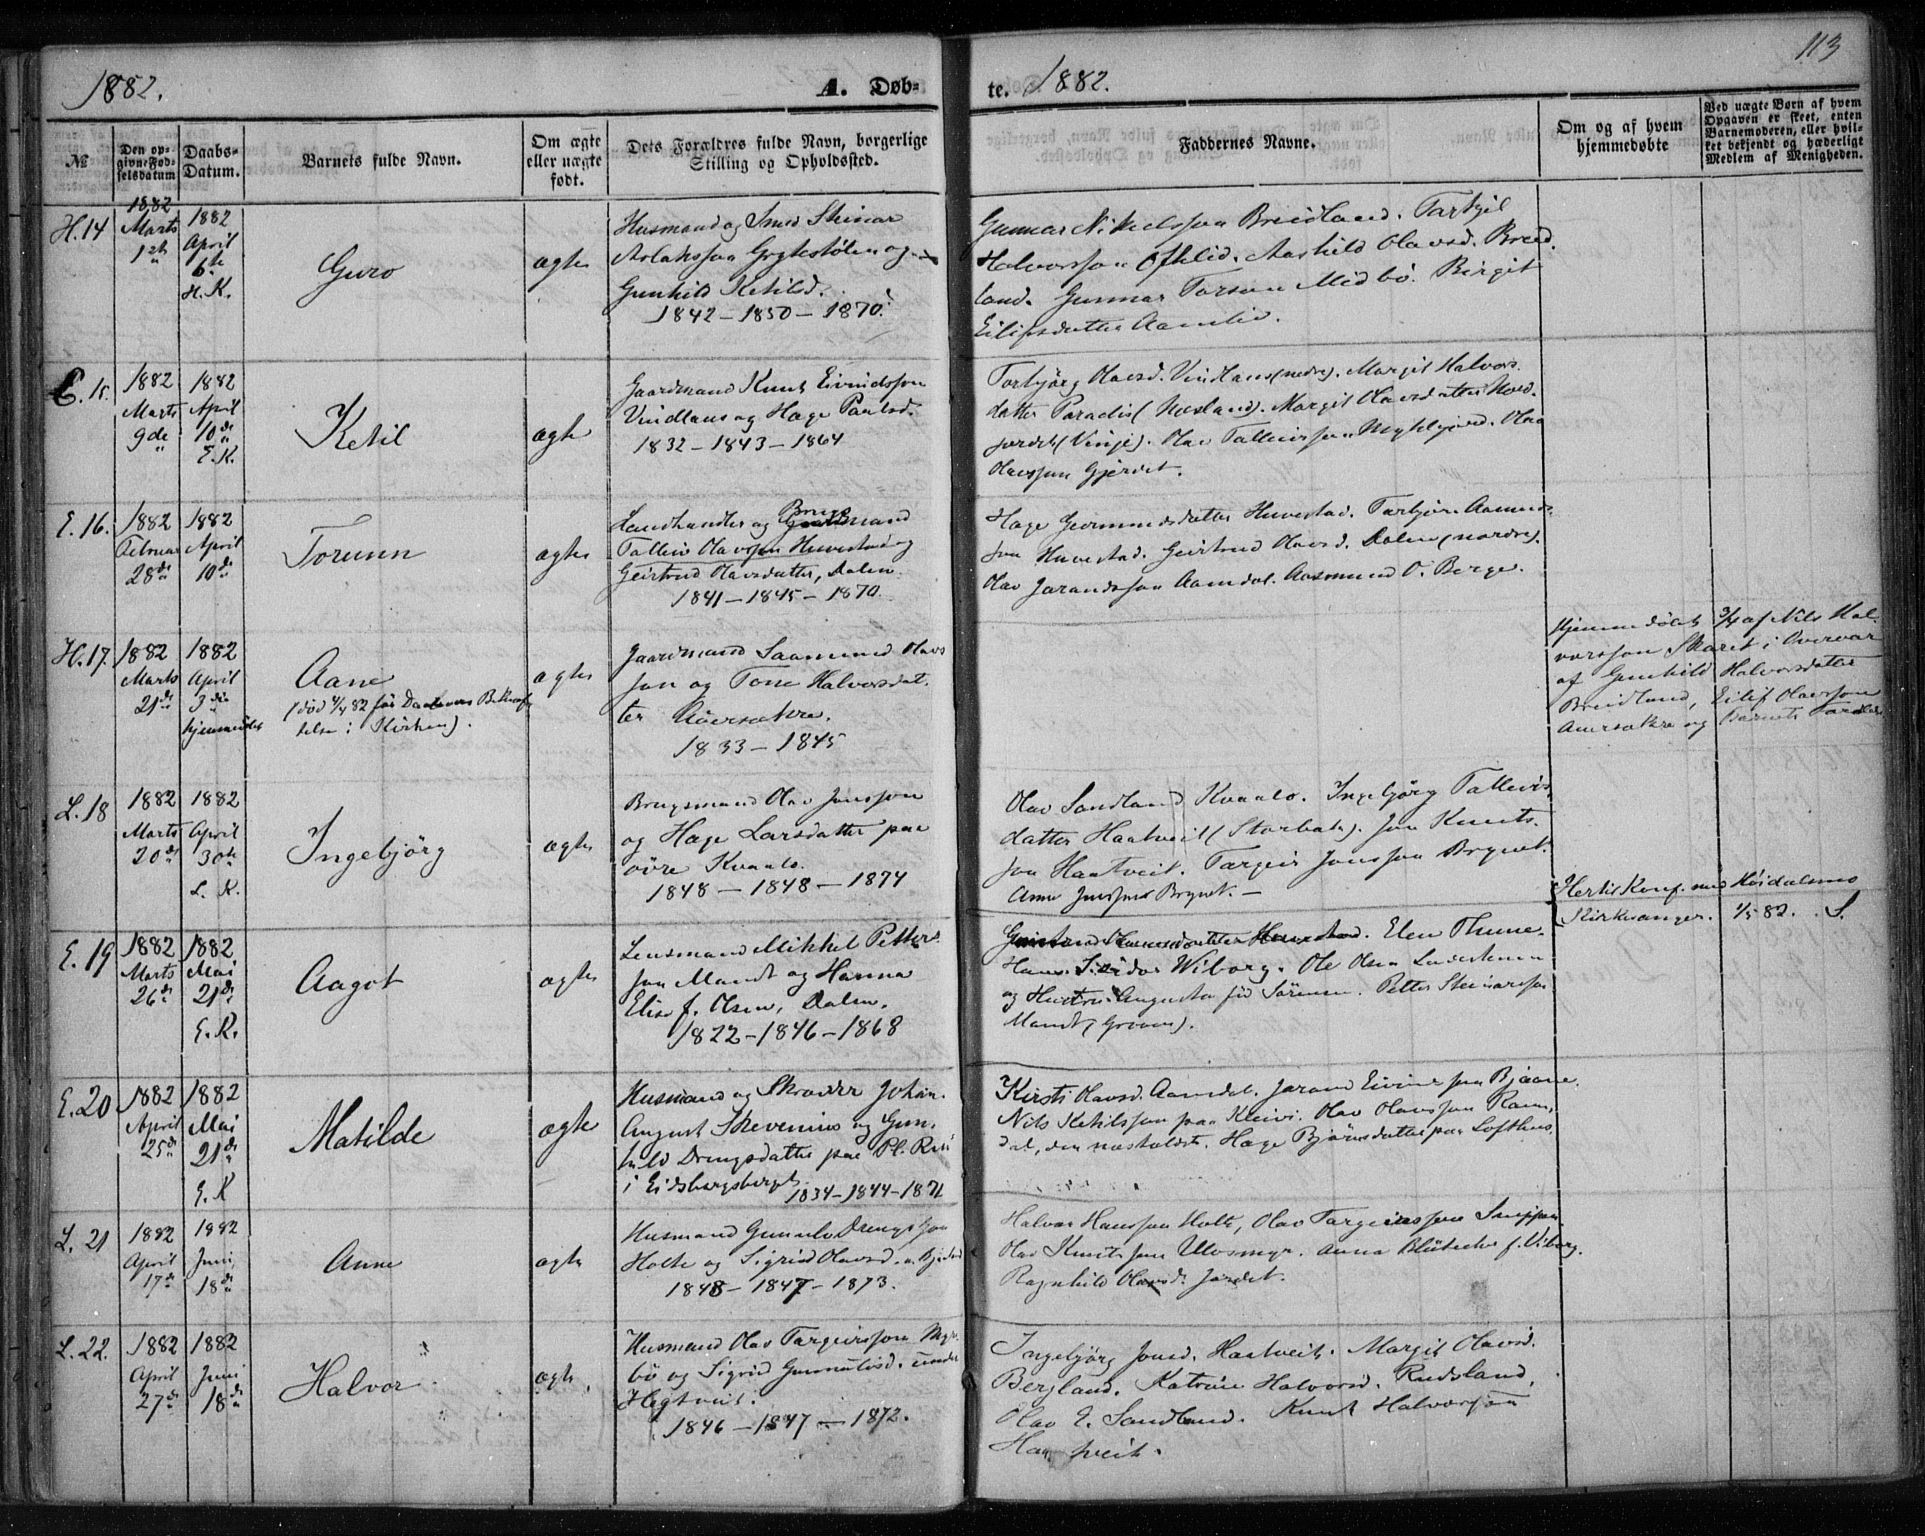 113
1882.
A. Døb=
te. 1882.
№
Den op-
givne Fød-
selsdatum
Daabs-
Datum.
Barnets fulde Navn.
Om ægte
eller uægte
født.
Dets Forældres fulde Navn, borgerlige
Stilling og Opholdssted.
Faddernes Navne.
Om og af hvem
hjemmedøbte
Ved uægte Børn af hvem
Opgaven er skeet, enten
Barnemoderen, eller hvil-
ket bekjendt og hæderligt
Medlem af Menigheden.
H. 14
1882
Marts
1ste
1882
April
6te
H. K.
Guro
ægte
Husmand og Smed Steinar
Aslaksson Grytestølen og
Gunhild Ketilsd.
1842 - 1850 - 1870.
Gunnar Nikelsson Breidland. Tarkjil
Halvorsson Ofthlid. Aashild Olavsd. Breid.
land. Gunnar Torson Midbö. Birgit
Eilifsdatter Aamlid.
E. 15.
1882
Marts
9de
1882
April
10de
E. K.
Ketil
ægte
Gaardmand Knut Eivindsson
Vindlaus og Hage Paalsd.
1832 - 1843 - 1864
Torbjörg Olavsd. Vindlaus (nedre). Margit Halvors.
datter Paradis (Næsland). Margit Olavsdatter Nord.
jordet (Vinje). Olav Talleivsson Myklejord. Olav
Olavsson Gjerdet.
E. 16.
1882
Februar
28de
1882
April
10de
Torunn
ægte
Landhandler og Brugsmand
Talleiv Olavsson Huvestad og
Geirtrud Olavsdatter, Dalen.
1841 - 1845 - 1870.
Hage Germundsdatter Huvestad. Tarbjörn Aamunds.
son Huvestad. Geirtrud Olavsd. Dalen (nordre).
Olav Jarandsson Aamdal. Aasmund O. Berge.
H. 17.
1882
Marts
21de
1882
April
3die
hjemmedöbt
Aane
(död 4/4 82 før Daabens Bekræf
telse i Kirken).
ægte
Gaardmand Saamund Olavs
son og Tone Halvorsdat.
ter Aaversakre.
1833 - 1845
Hjemmedöbt 3/4 af Nils Hal
vorsson Skaret i Overvær
af Gunhild Halvorsdatter
Breidland, Eilif Olavsson
Aaversakre og Barnets Fader
L. 18
1882
Marts
20de
1882
April
30te
L. K.
Ingebjörg
ægte
Brugsmand Olav Jonsson
og Hage Larsdatter paa
övre Kvaalo.
1848 - 1848 - 1874
Olav Sandland Kvaalo. Ingebjörg Talleivs.
datter Haatveit (Storbak). Jon Knuts.
son Haatveit. Targeir Jonsson Brynet.
Anne Jonsdtr Brynet. -
Hertil Konf. med Höidalsmo
Kirkesanger. 1/5 82. S.
E. 19
1882
Marts
26de
1882.
Mai
21de
E. K.
Aagot
ægte
Lensmand Mikkel Petters
son Mandt og Hanna
Elise f. Olsen, Dalen.
1822 - 1846 - 1868
Geirtrud Olavsdatter Huvestad. Elen Thune.
Hans Isidor Wiborg. Ole Olsen
og Hustru Augusta föd Sörensen. Petter Steinarsson
Mandt (Groven).
E. 20
1882
April
25de
1882
Mai
21de
E. K
Matilde
ægte
Husmand og Skræder Johan.
August Skevenius og Gun.
hild Drengsdatter paa Pl. Rui
i Eidsborgsberget
1834 - 1844 - 1871
Kirsti Olavsd. Aamdal. Jarand Eivindsson Bjaane.
Nils Ketilsson paa Kleivi. Olav Olavsson Raun.
dal, den næsteldste. Hage Björnsdatter paa Lofthus.
L. 21
1882
April
17de
1882
Juni
18de
Anne
ægte
Husmand Gunnulv Drengsson
Holte og Sigrid Olavsd.
1848 - 1847 - 1873.
Halvor Hansson Holte, Olav Targeirsson Snippen
Olav Knutsson Ulvsmyr. Anna Blütecher f. Viborg.
Ragnhild Olavsd. Jordet.
L. 22.
1882
April
27de
1882
Juni
18de
Halvor
ægte
Husmand Olav Targeirsson Myr.
bö og Sigrid Gunnulvsd. under
Hegtveit.
1846 - 1847 - 1872.
Ingebjörg Jonsd. Haatveit. Margit Olavsd.
Bergland. Katrine Halvorsd. Rudsland.
Olav E. Sandland. Knut Halvorsson
Haatveit.